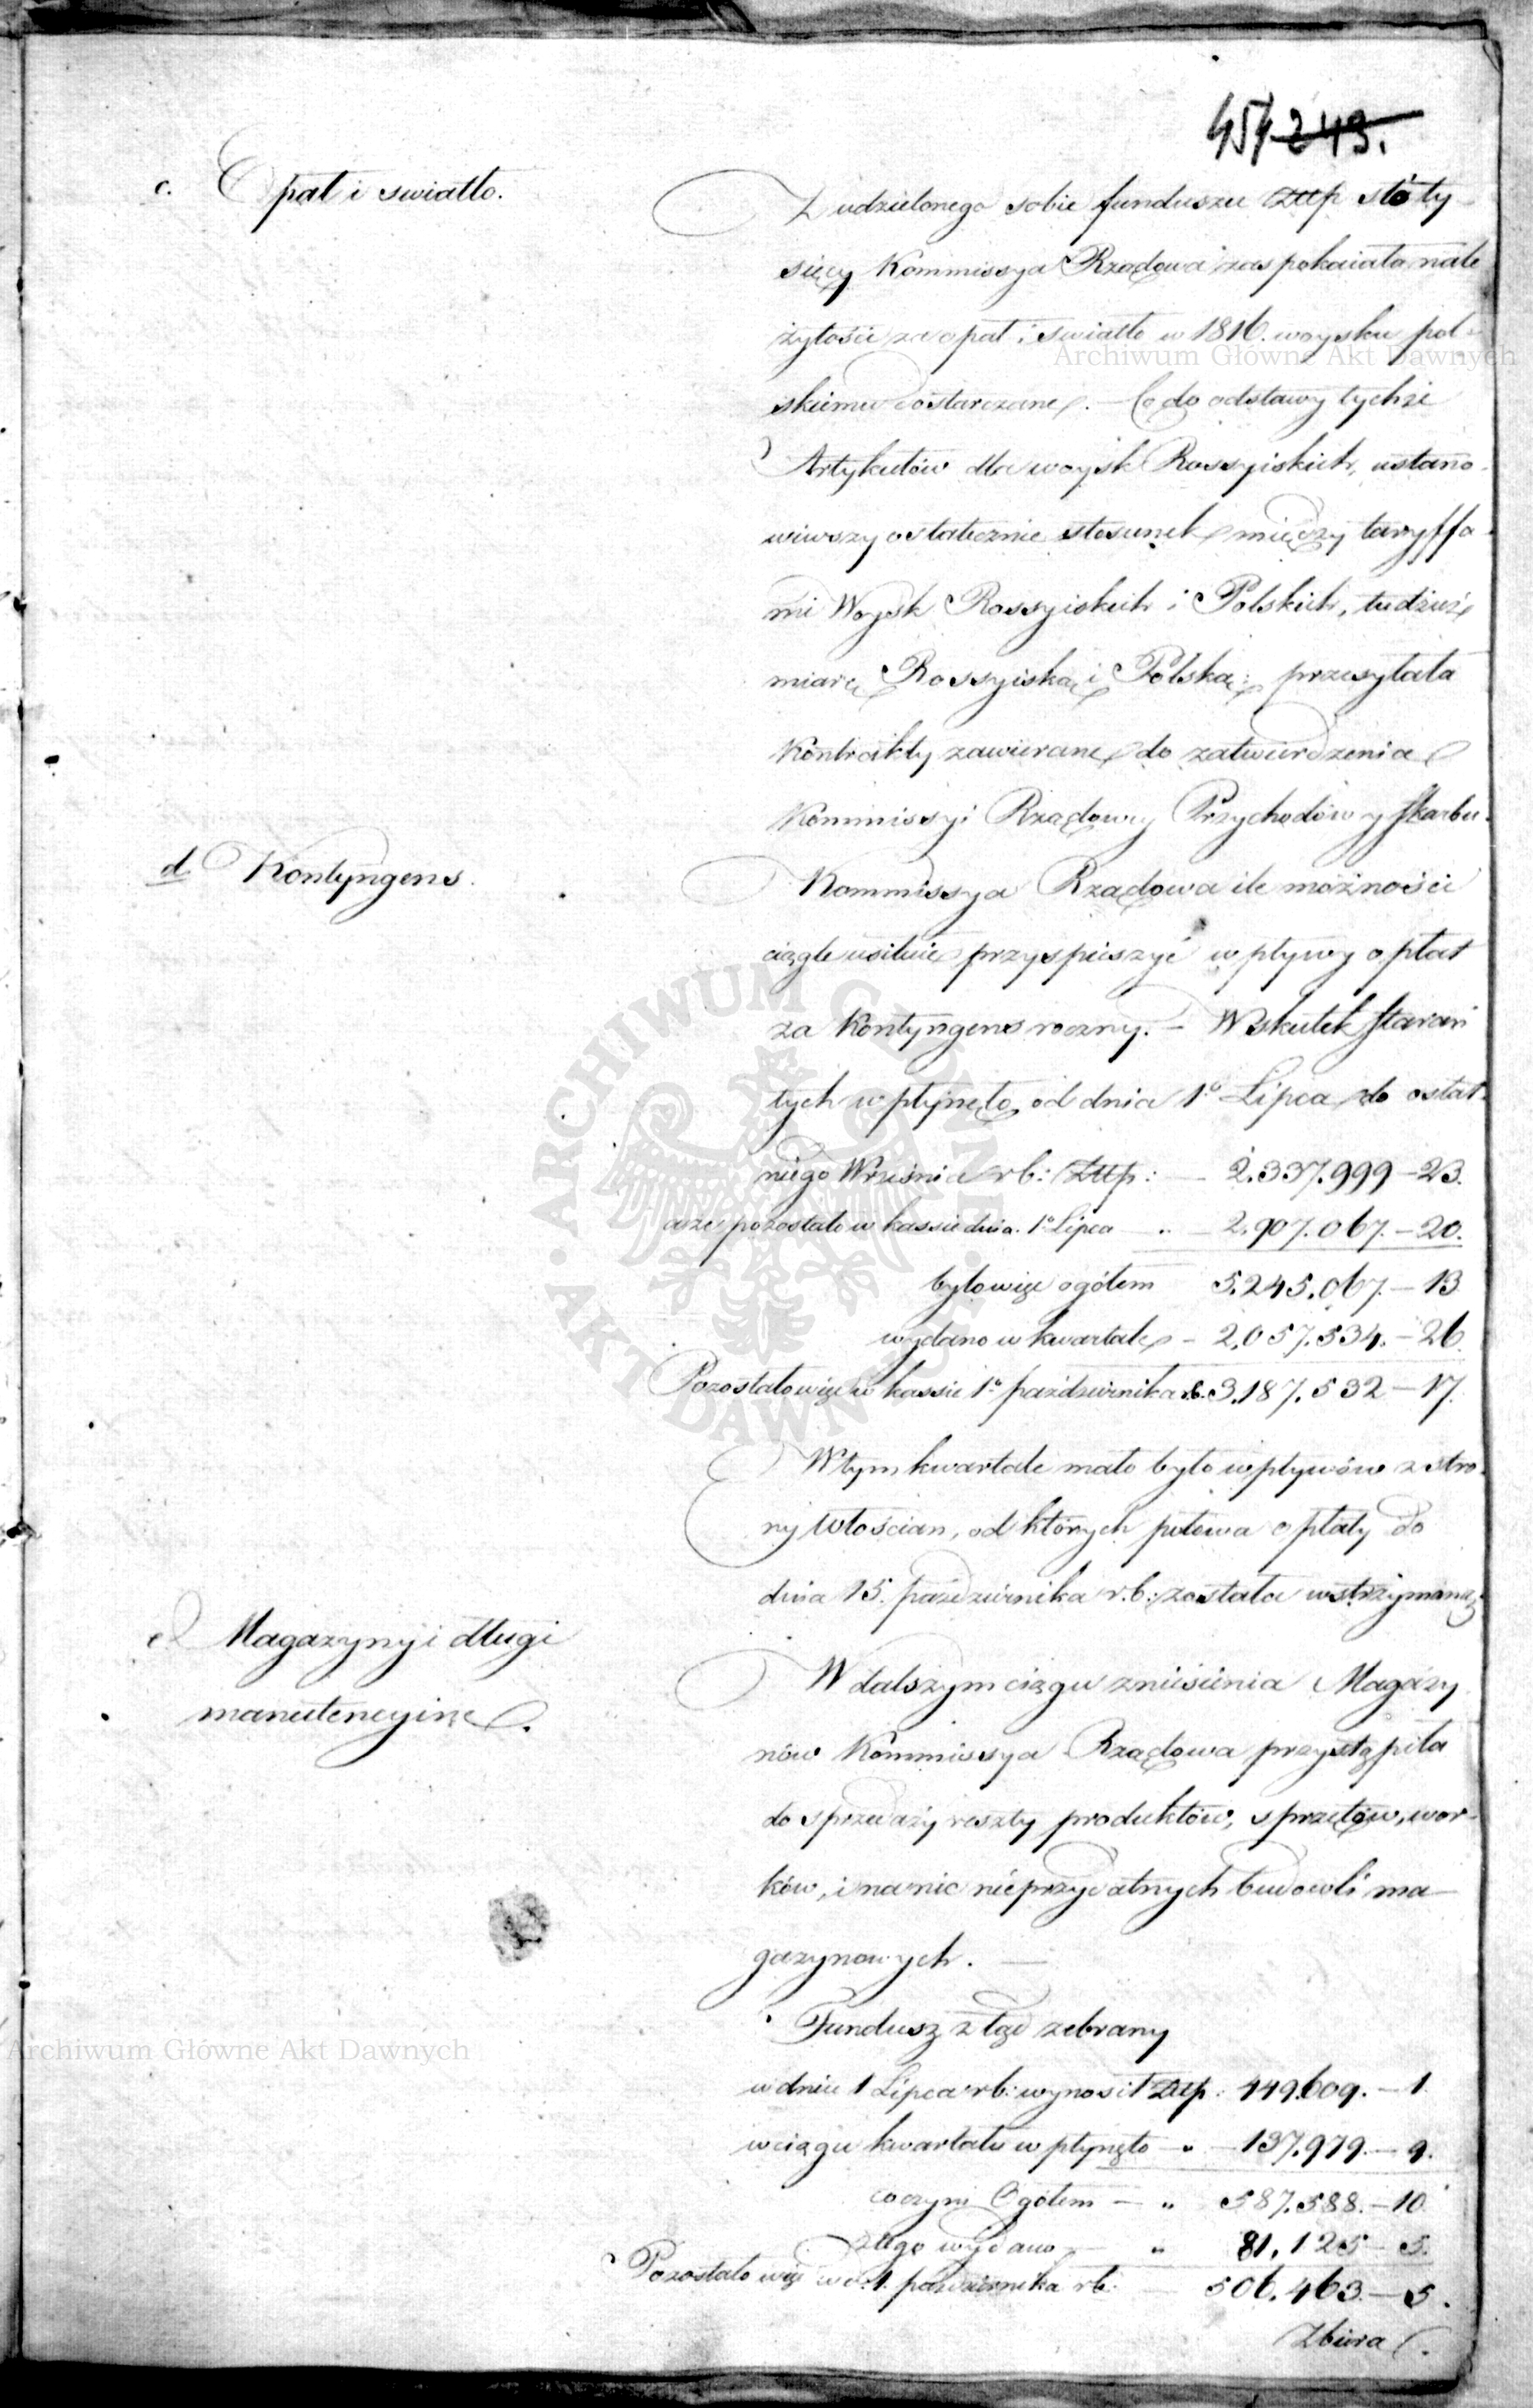 454 249.
c. Opał i swiatło.
Z udzielonego sobie funduszu Złłp sto ty-
sięcy Kommissya Rządowa zaspokaiała nale
żytości za opał i swiatło w 1816. woysku pol-
skiemu dostarczane. – Co do odstawy tychże
Artykułów dla woysk Rossyiskich, ustano-
wiwszy ostatecznie stosunek między taryffa-
mi Woysk Rossyiskich i Polskich, tudzież
miarą Rossyiską i Polską; przesyłała
Kontrakty zawierane do zatwierdzenia
Kommissyi Rządowey Przychodów y Skarbu.
d. Kontyngens.
Kommissya Rządowa ile możności
ciągle usiłuie przyspieszyć wpływy opłat
za Kontyngens roczny. – W skutek starań
tych wpłynęło od dnia 1o Lipca do ostat-
niego Września rb: Złłp: – 2.337.999 – 23.
a że pozostało w kassie dnia 1o Lipca „ – 2.907.067. – 20.
było więc ogółem 5.245.067. – 13
wydano w kwartale – 2.057.534. – 26
Pozostało więc w kassie 1o października rb. 3.187.532 – 17.
W tym kwartale mało było wpływów z stro-
ny Włościan, od których połowa opłaty do
dnia 15. października r.b: została wstrzymaną.
e. Magazyny i długi
manutencyine.
W dalszym ciągu zniesienia Magazy
nów Kommissya Rządowa przystąpiła
do sprzedaży reszty produktów, sprzętów, wor-
ków, i na nic nieprzydatnych budowli ma–
gazynowych. –
Fundusz z tąd zebrany
w dniu 1 Lipca rb: wynosił Złłp: 449.609. – 1.
w ciągu kwartału wpłynęło – „ – 137.979. – 9.
co czyni Ogółem – „ 587.588. – 10.
z tego wydano – „ 81,125 – 5.
Pozostało więc w d. 1. października rb. – 506.463. – 5.
Zbiera
Archiwum Główne Akt Dawnych
Archiwum Główne Akt Dawnych
ARCHIWUM GŁÓWNE AKT DAWNYCH